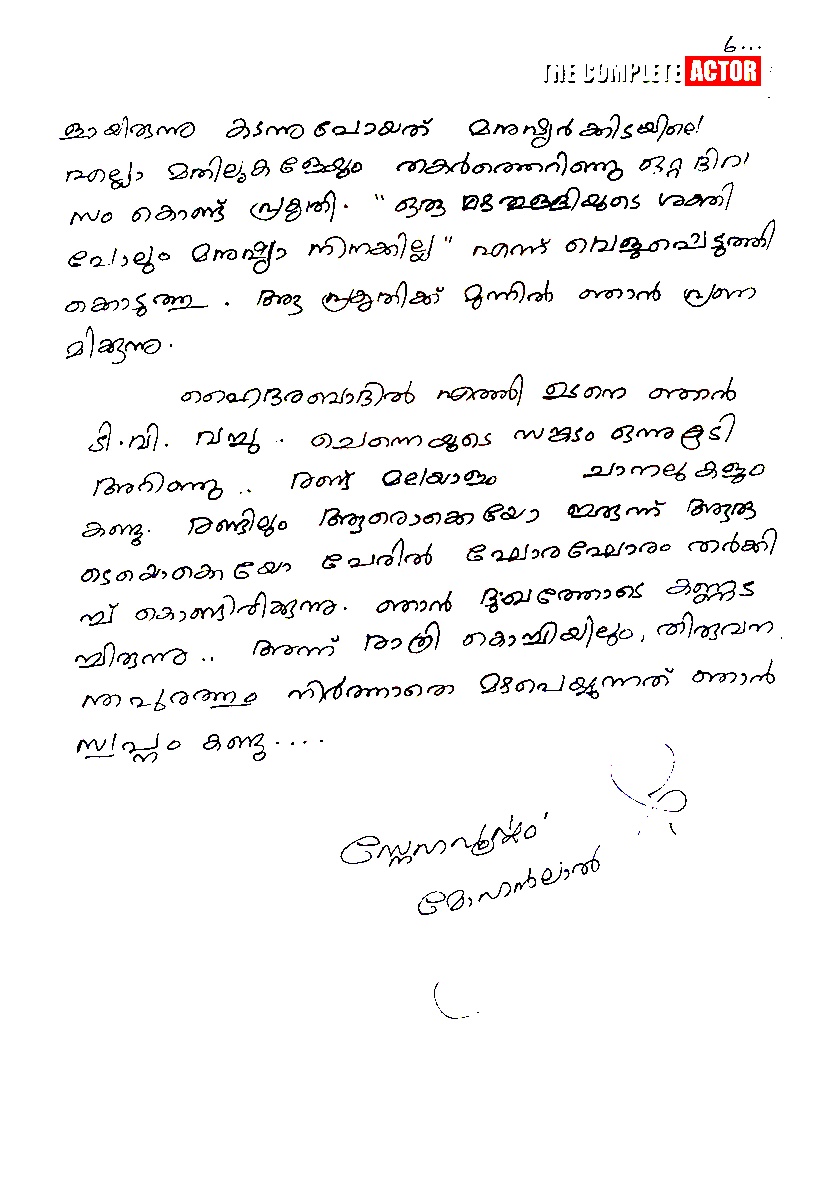 6...
THE COMPLETE ACTOR
ളായിരുന്നു കടന്നുപോയത് മനുഷ്യർക്കിടയിലെ
എല്ലാ മതിലുകളേയും തകർത്തെറിഞ്ഞു ഒറ്റ ദിവ
സം കൊണ്ട് പ്രകൃതി. "ഒരു മഴത്തുള്ളിയുടെ ശക്തി
പോലും മനുഷ്യാ നിനക്കില്ല" എന്ന് വെളിപ്പെടുത്തി
കൊടുത്തു. ആ പ്രകൃതിക്ക് മുന്നിൽ ഞാൻ പ്രണ
മിക്കുന്നു.
ഹൈദരബാദിൽ എത്തി ഉടനെ ഞാൻ
ടി.വി. വച്ചു. ചെന്നൈയുടെ സങ്കടം ഒന്നുകൂടി
അറിഞ്ഞു.. രണ്ട് മലയാളം ചാനലുകളും
കണ്ടു. രണ്ടിലും ആരൊക്കെയോ ഇരുന്ന് ആരു
ടെയൊക്കെയോ പേരിൽ ഘോരഘോരം തർക്കി
ച്ച് കൊണ്ടിരിക്കുന്നു. ഞാൻ ദു:ഖത്തോടെ കണ്ണട
ച്ചിരുന്നു.. അന്ന് രാത്രി കൊച്ചിയിലും, തിരുവന
ന്തപുരത്തും നിർത്താതെ മഴപെയ്യുന്നത് ഞാൻ
സ്വപ്നം കണ്ടു....
സ്നേഹപൂർവ്വം
മോഹൻലാൽ